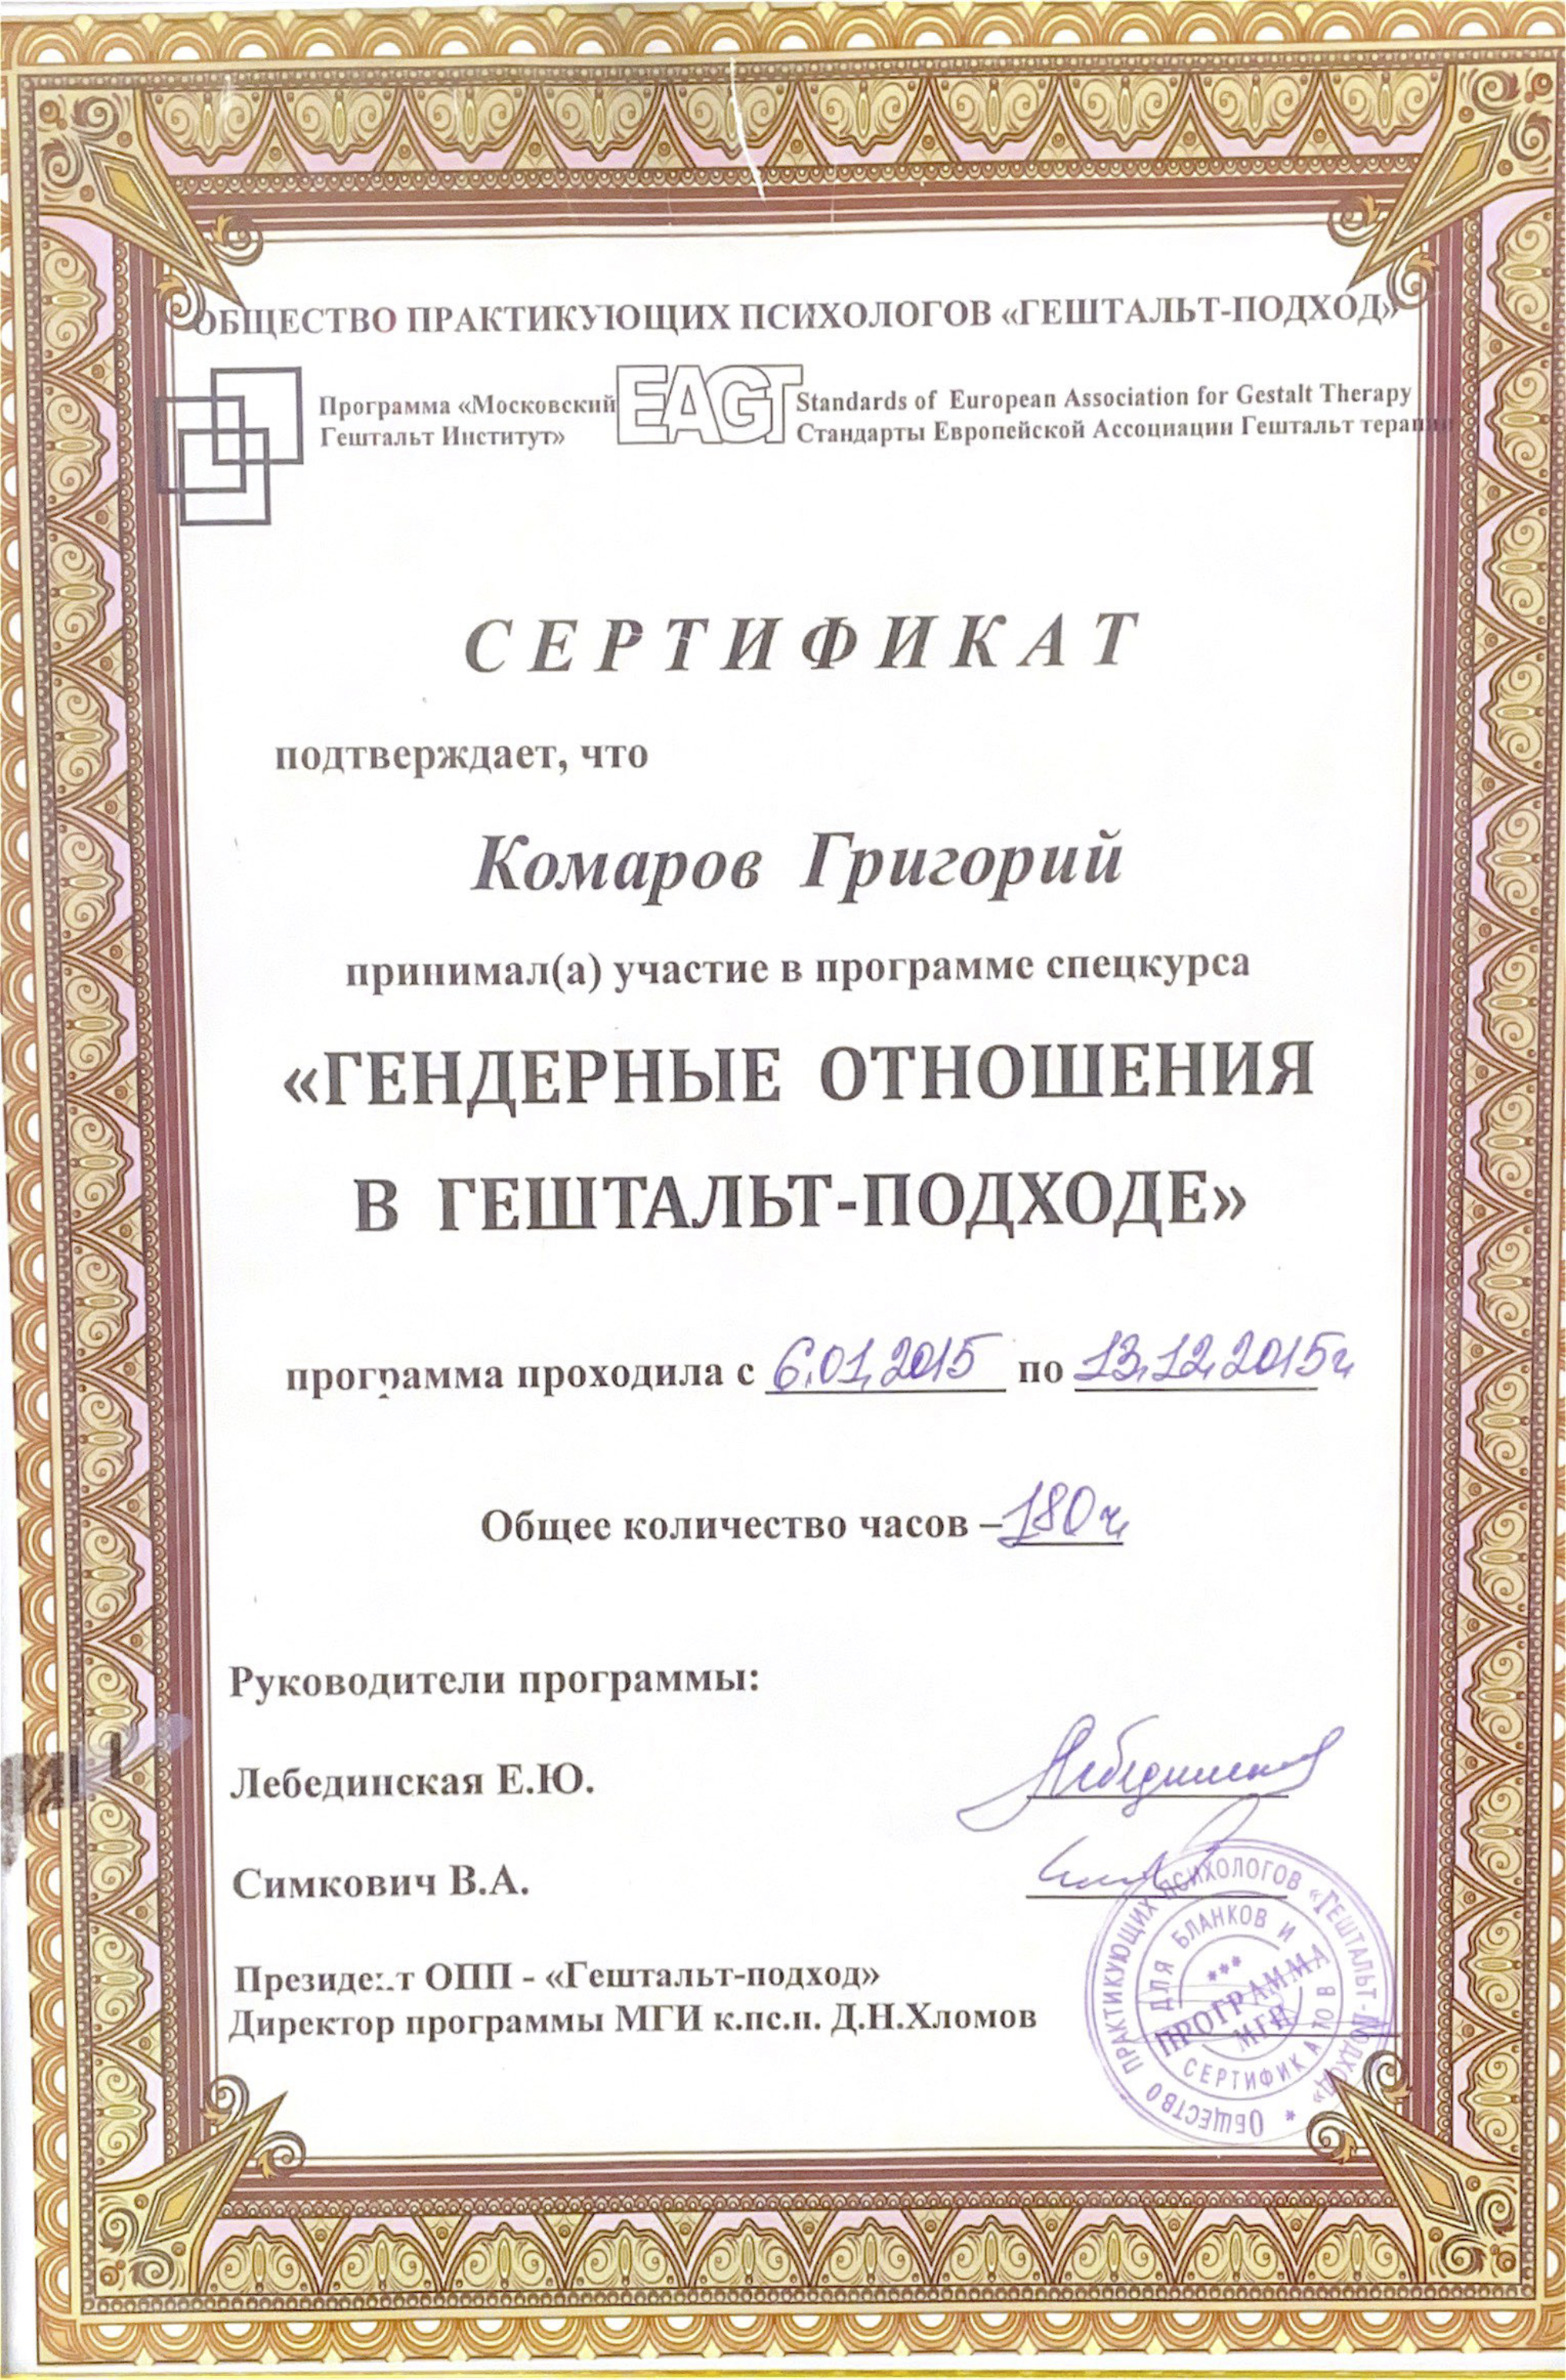 ОБЩЕСТВО ПРАКТИКУЮЩИХ ПСИХОЛОГОВ «ГЕШТАЛЬТ-ПОДХОД»
Программа «Московский
Гештальт Институт»
EAGT
Standards of European Association for Gestalt Therapy
Стандарты Европейской Ассоциации Гештальт терапии
СЕРТИФИКАТ
подтверждает, что
Комаров Григорий
принимал(а) участие в программе спецкурса
«ГЕНДЕРНЫЕ ОТНОШЕНИЯ
В ГЕШТАЛЬТ-ПОДХОДЕ»
программа проходила с 6.01.2015 по 13.12.2015г.
Общее количество часов – 180 ч.
Руководители программы:
Лебединская Е.Ю.
Симкович В.А.
Президент ОПП - «Гештальт-подход»
Директор программы МГИ к.пс.н. Д.Н.Хломов
ОБЩЕСТВО ПРАКТИКУЮЩИХ ПСИХОЛОГОВ «ГЕШТАЛЬТ-ПОДХОД»
ДЛЯ БЛАНКОВ И СЕРТИФИКАТОВ
ПРОГРАММА
МГИ